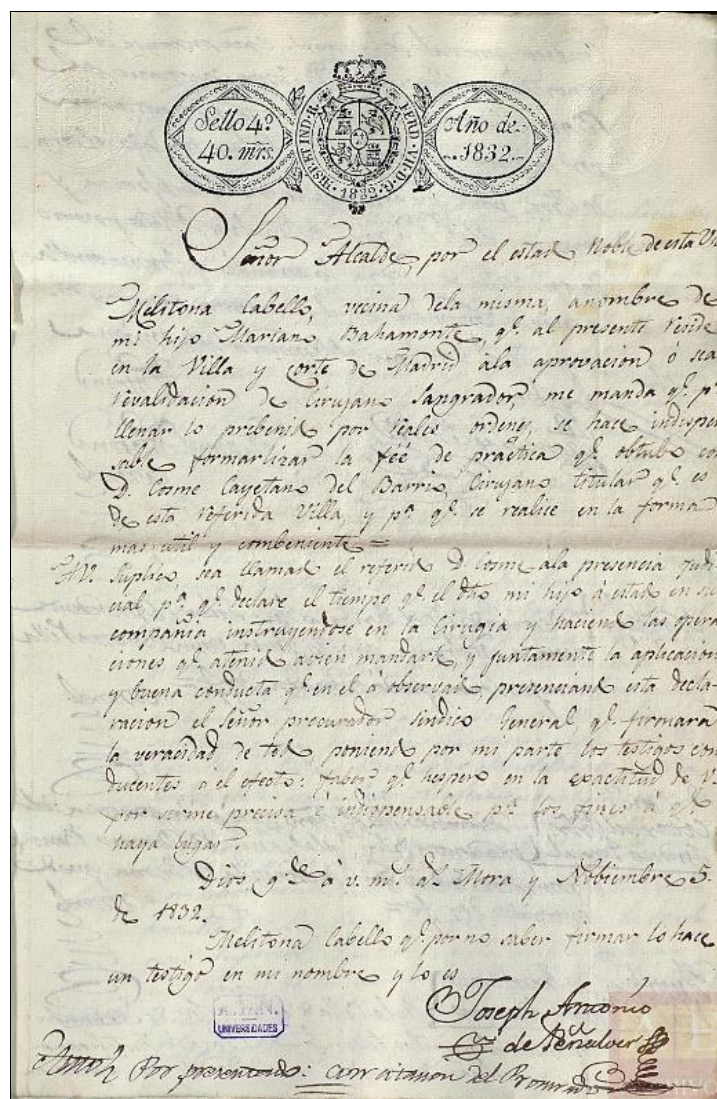 Sello 4º
40. mrs.
HISP. ET IND. R.
FERD. VII. D. G.
1832
Año de
1832
Señor Alcalde, por el estado Noble de esta Vi
Melitona Cabello, vecina dela misma, anombre de
mi hijo Mariano Bahamonte, qe. al presente reside
en la Villa y corte de Madrid ála aprovacion ó sea
revalidacion de Cirujano Sangrador, me manda qe. pa
llenar lo prebenido por reales ordenes, se hace indispen
sable formarlizar la feé de práctica qe. obtubo con
D. Cosme Cayetano del Barrio, Cirujano titular qe. es
de esta referida Villa, y pa. qe. se realice en la forma
mas util y combeniente =
A V. Suplico sea llamado el referido D. Cosme ála presencia judi
cial, pa. qe. declare el tiempo qe. el dho mi hijo á estado en su
compañia instruyendose en la Cirugia y haciendo las opera
ciones qe. atenido avien mandarle, y juntamente la aplicacion
y buena conducta qe. en el á observado, presenciando esta decla-
racion el Señor procurador Sindico General, qe. firmará
la veracidad de todo, poniendo por mi parte los testigos con
ducentes á el efecto: fabor qe. hespero en la exactitud de V.
por serme precisa é indispensable pa. los fines á qe.
haya lugar.
Dios gue á v. ms. as. Mora y Nobiembre 5.
de 1832.
Melitona Cabello qe. por no saber firmar lo hace
un testigo en mi nombre y lo es
Joseph Antonio
de Peñalver
UNIVERSIDADES
Por presentado: con citacion del Procurador